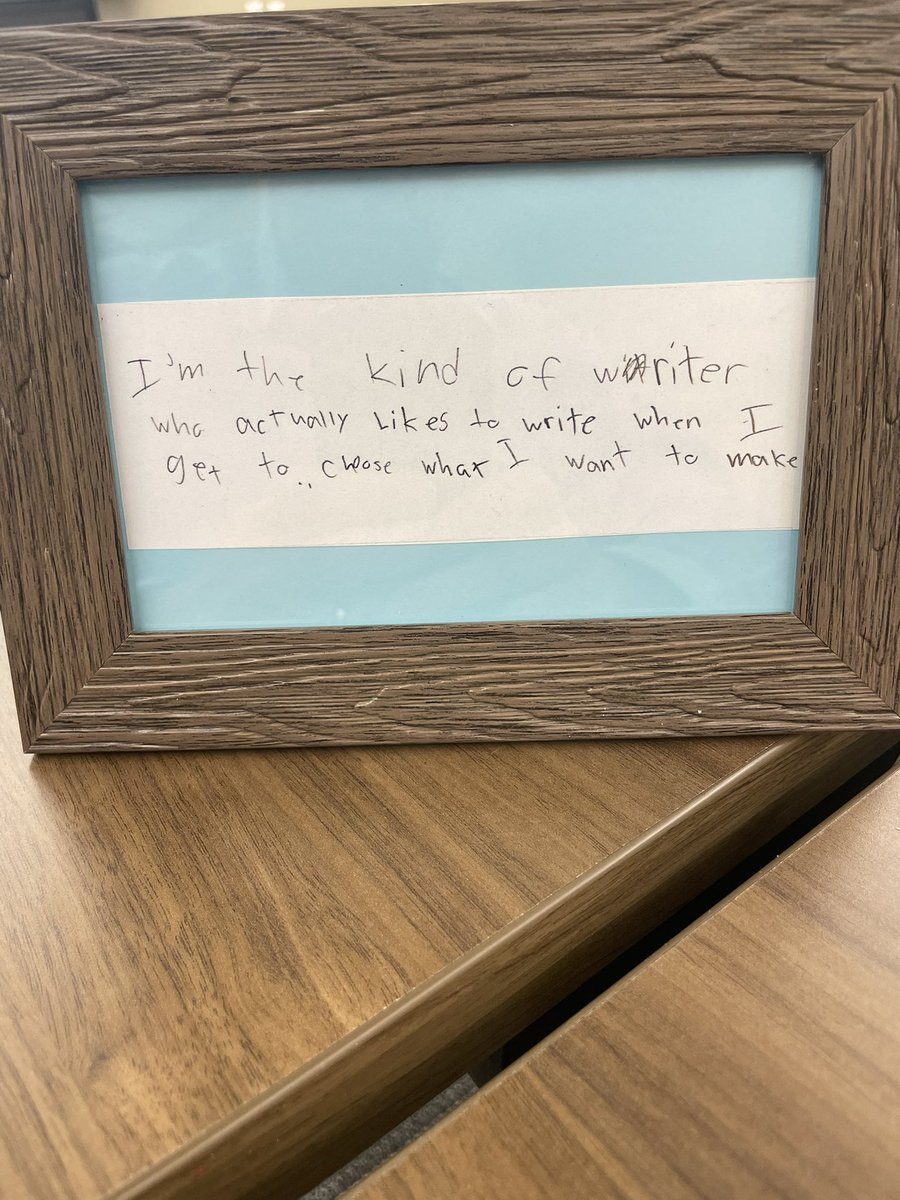 I'm the kind of writer
who actually Likes to write when I
get to choose what I want to make